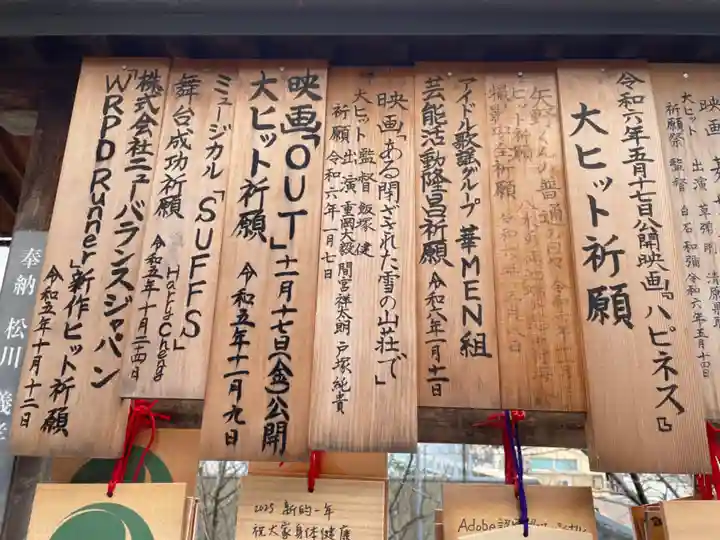 映画
大ヒット
祈願祭 監督 白石和彌 令和六年五月十四日
令和六年五月十七日公開映画「ハピネス」
大ヒット祈願
矢野くんの普通の日々
ヒット祈願
撮影安全祈願
アイドル歌謡グループ 華MEN組
芸能活動隆昌祈願 令和六年一月十一日
映画「ある閉ざされた雪の山荘で」
大ヒット 監督 飯塚 健
祈願 出演 重岡大毅 間宮祥太朗 戸塚純貴
令和六年一月七日
映画「OUT」十一月十七日(金)公開
大ヒット祈願 令和五年十一月九日
ミュージカル「SUFFS」
舞台成功祈願 Harry Cheng
令和五年十月二十四日
株式会社ニューバランスジャパン
「WRPD Runner」新作ヒット祈願
令和五年十月十二日
奉納 松川
2025 新的一年
祝大家身体健康
Adobe認